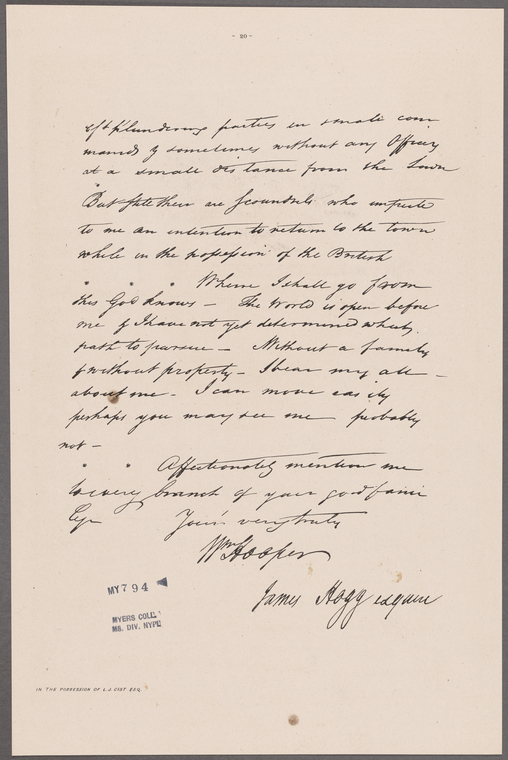 - 20 -
of & plundering parties in small com
mands & sometimes without any Officer
at a small distance from the Town
But still there are Scoundrels who impute
to me an intention to return to the town
while in the possession of the British
* * * Where I shall go from
this God knows — The World is open before
me & I have not yet determined which
path to pursue — Without a family
& without property — I bear my all —
about me — I can move easily
perhaps you may see me probably
not —
* * Affectionately mention me
to every branch of your good fami
Yours very truly
Wm Hooper
James Hogg esquire
MY 794
MYERS COLL.
MS. DIV. NYPL
IN THE POSSESSION OF L. J. CIST ESQ.